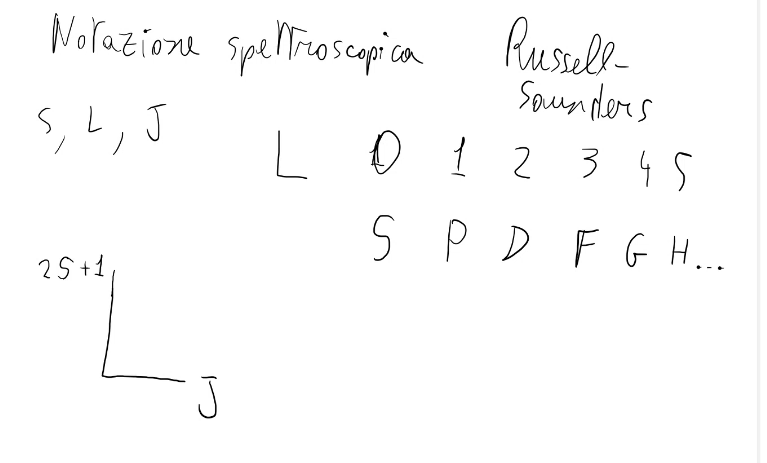 Notazione spettroscopica Russell-
Saunders
S, L, J
L 0 1 2 3 4 5
S P D F G H...
2S+1
L
J